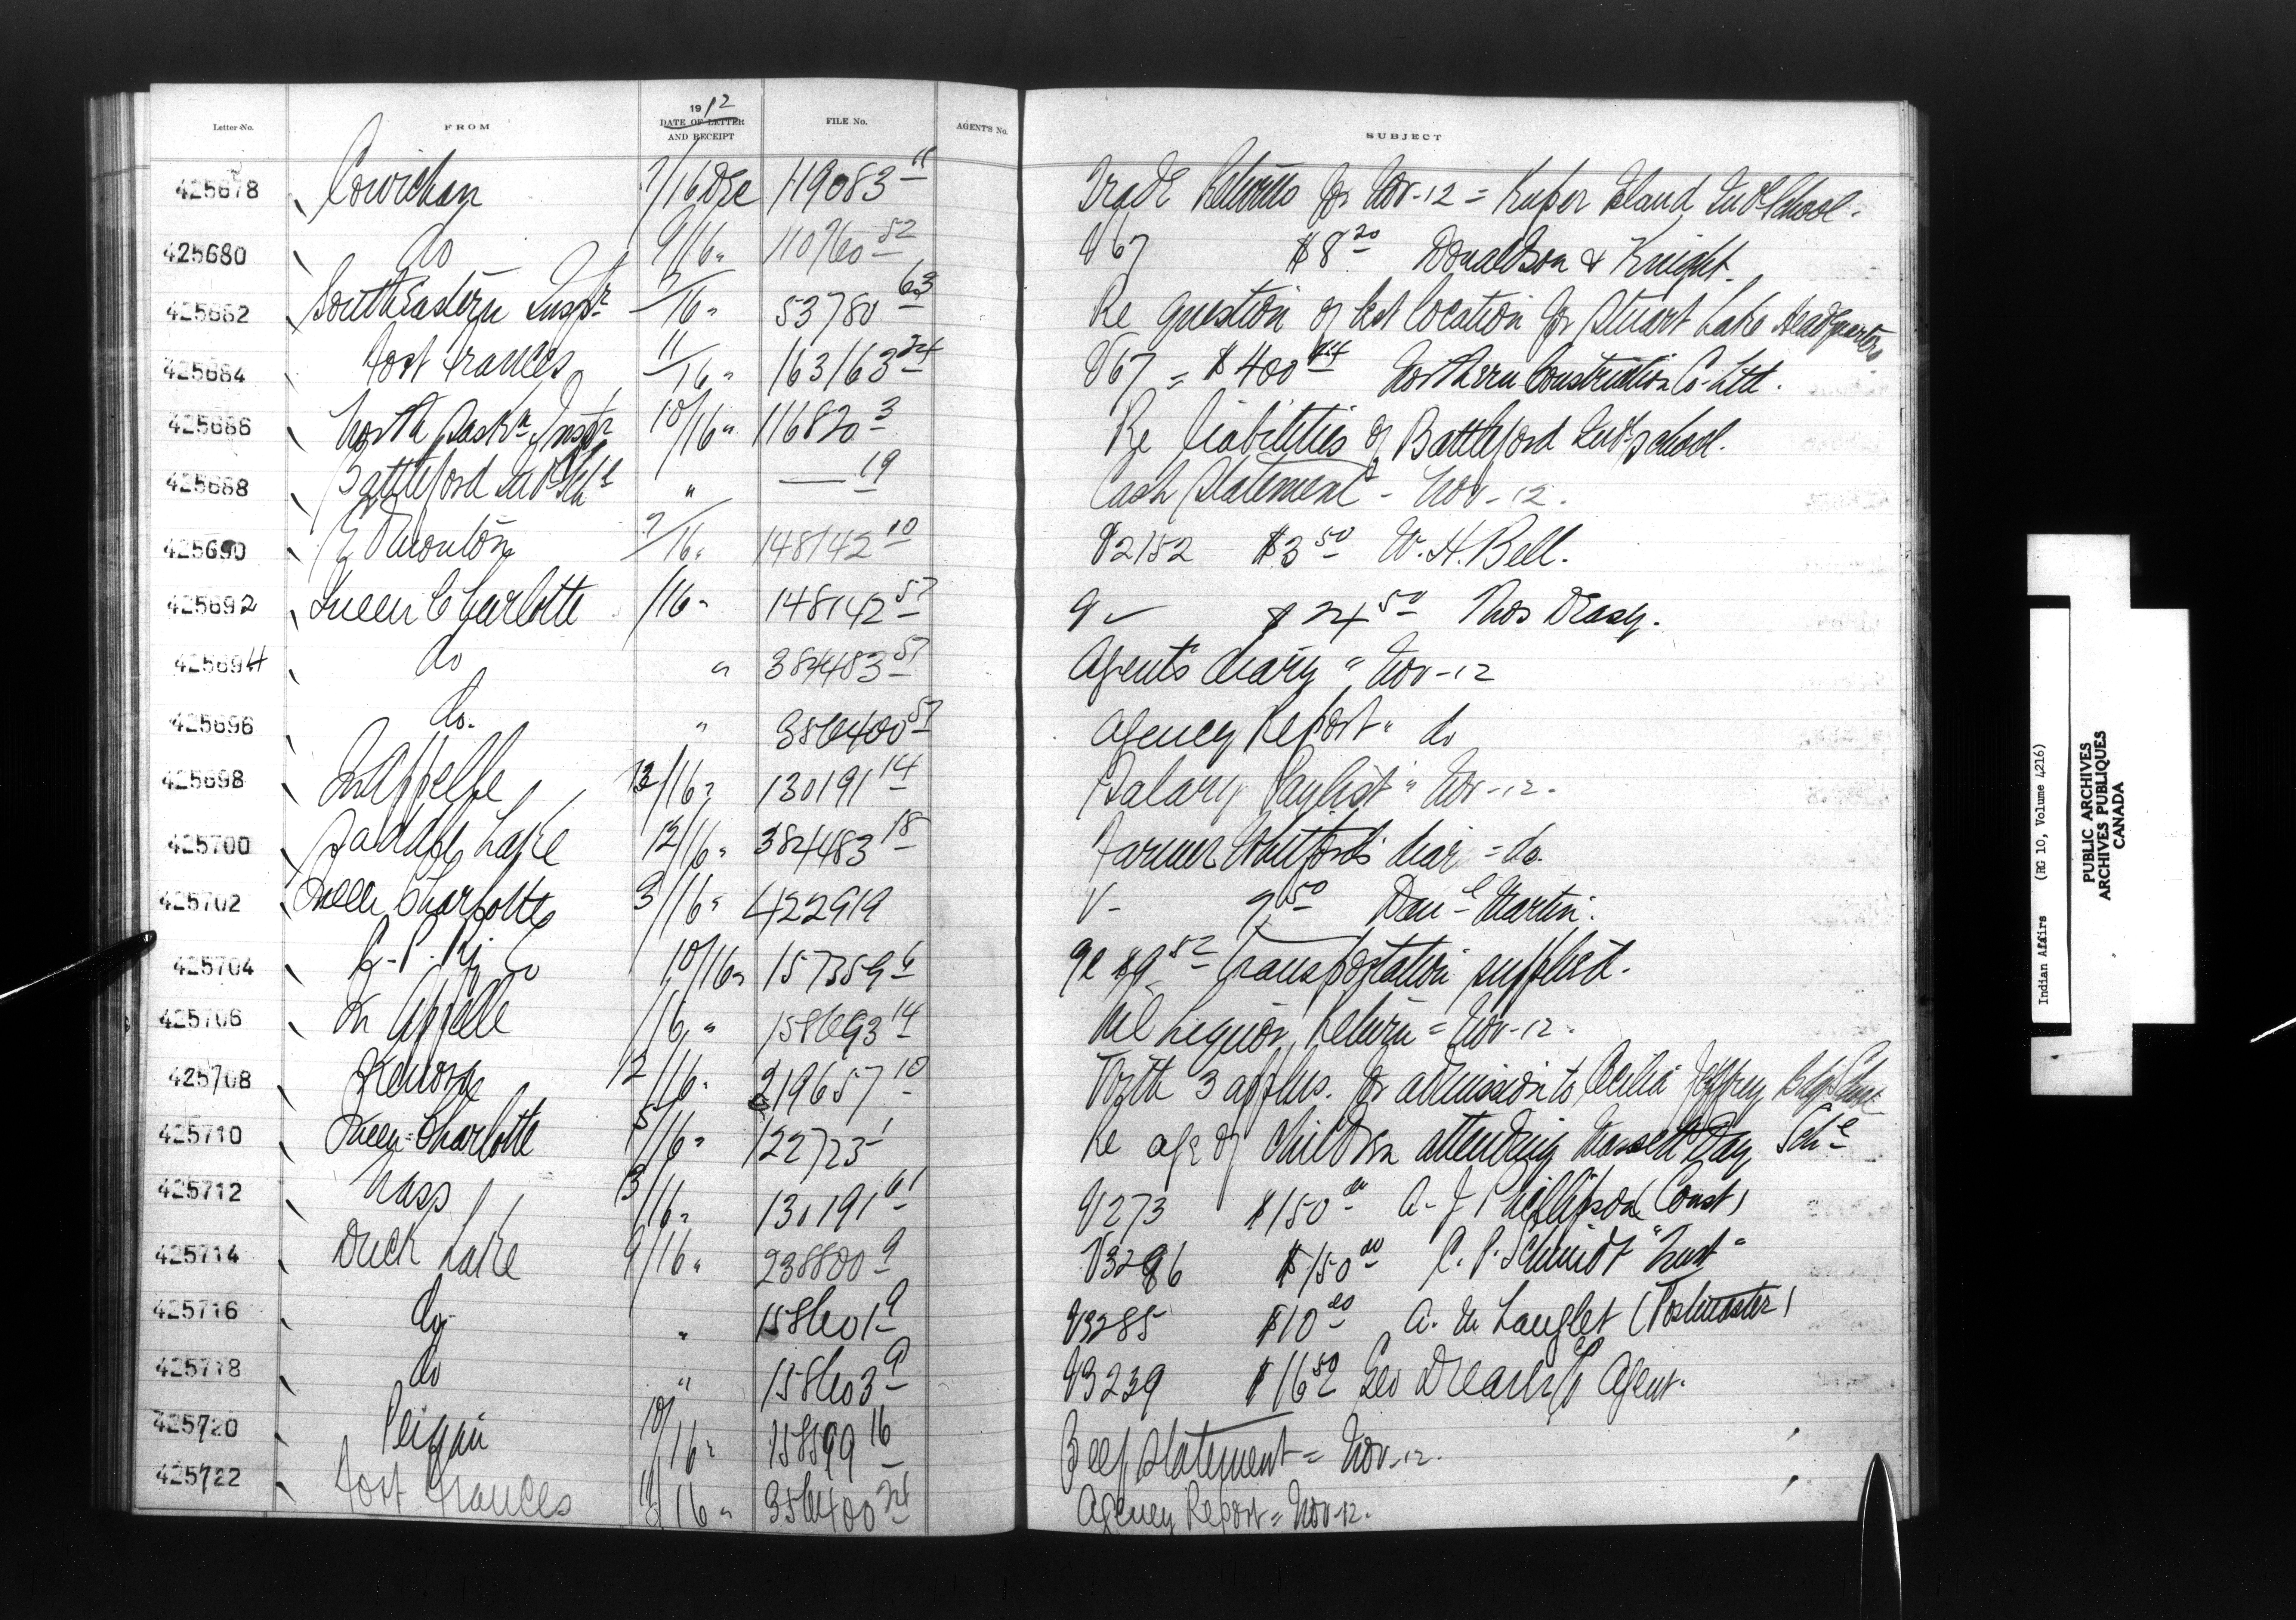 Letter No. FROM 1912 DATE OF LETTER AND RECEIPT FILE No. AGENT'S No. SUBJECT
425678 Cowichan 7/16 Dec 119083 11 Trade Returns for Nov-12 = Kuper Island Indl School.
425680 do 9/16 " 110760 52 V67 $8 20 Donaldson & Knight.
425682 South Eastern Inspr 7/16 " 53780 63 Re question of best location for Stuart Lake Headquarters
425684 Fort Frances 11/16 " 163163 24 V67 = $400 44 Northern Construction Co Ltd.
425686 North Saskn Inspr 10/16 " 116820 3 Re liabilities of Battleford Indl School.
425688 Battleford Indl Schl " — 19 Cash Statement - Nov-12.
425690 Edmonton 9/16 " 148142 10 V2152 $3 50 W. H. Bell.
425692 Queen Charlotte /16 " 148142 57 $24 50 Thos Deasy.
425694 do " 384483 57 Agent's diary " Nov-12
425696 do. " 356400 57 Agency Report " do
425698 Qu'Appelle 13/16 " 130191 14 Salary Paylist " Nov-12.
425700 Saddle Lake 12/16 " 384483 18 Farmer Whitford's diar = do.
425702 Queen Charlotte 3/16 " 422919 V- 7 50 Danl Martin.
425704 C. P. Ry Co 10/16 " 157359 6 $9 52 transportation supplied.
425706 Qu'Appelle /16 " 158693 14 Nil Liquor Return = Nov-12.
425708 Kenora 12/16 " 219657 10 With 3 applns. for admission to Cecilia Jeffrey Bdg School
425710 Queen Charlotte 5/16 " 122723 1 Re age of children attending Massett Day Schl
425712 Nass 3/16 " 130191 61 V273 $150 00 A. J. Phillipson (Const)
425714 Duck Lake 9/16 " 238800 9 V3286 $150 00 C. P. Schmidt
425716 do " 158601 9 V3285 $10 00 A. M. Langlet (Postmaster)
425718 do " 158603 9 V3239 $16 50 Geo Agent.
425720 Peigan 10/16 " 158599 16 Beef Statement = Nov-12.
425722 Fort Frances 11/16 " 356400 24 Agency Report = Nov-12.
Indian Affairs (RG 10, Volume 4216)
PUBLIC ARCHIVES
ARCHIVES PUBLIQUES
CANADA